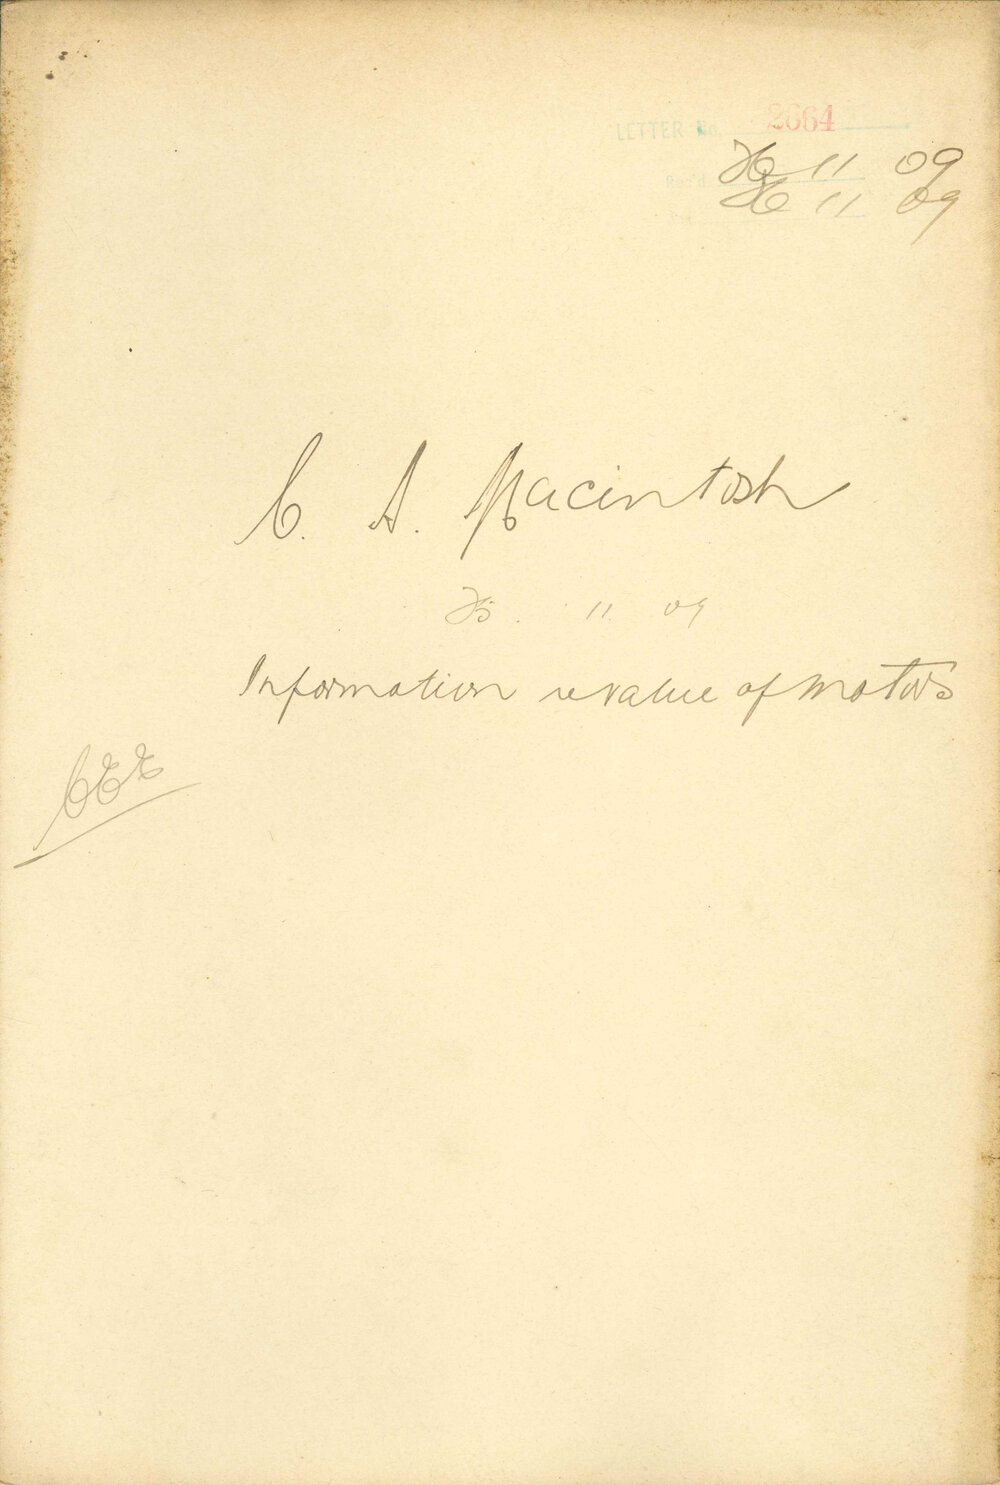 LETTER No. 2664
Rec'd 26 11 09
26 11 09
C. A. Macintosh
25. 11 09
Information re value of motors